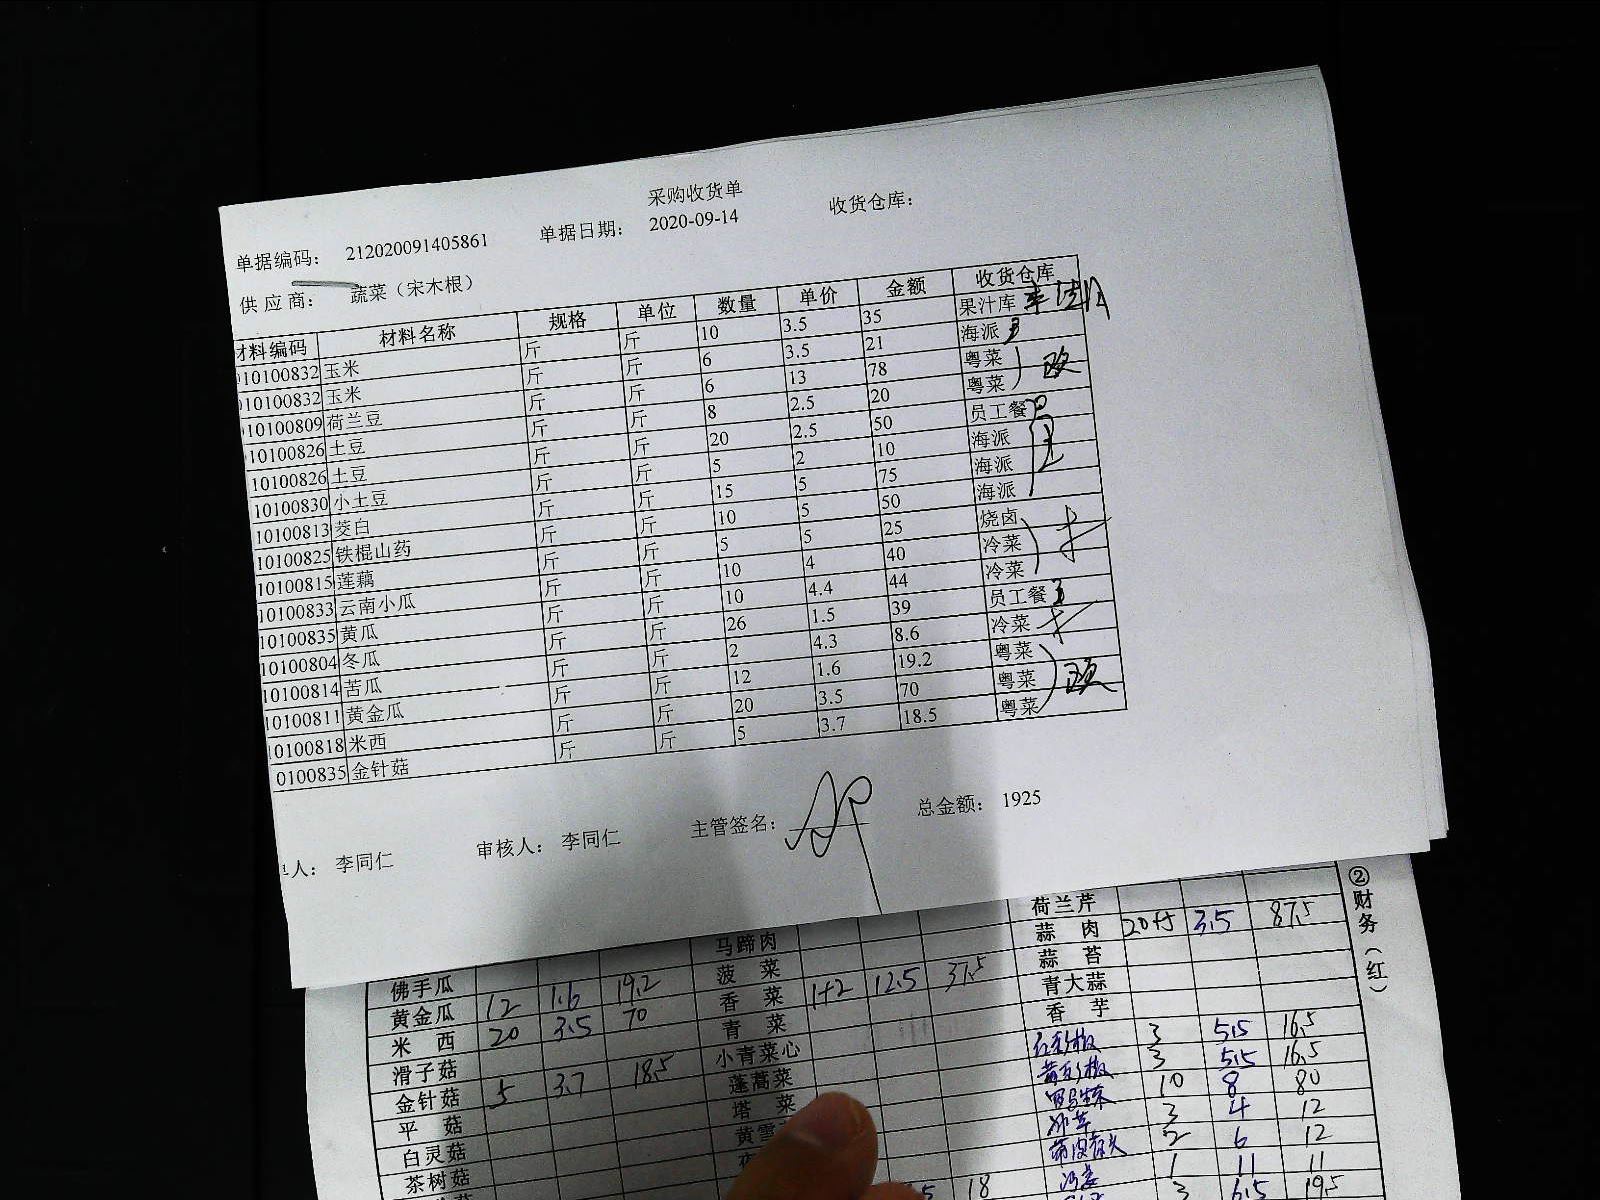 采购收货单
单据编码： 212020091405861 单据日期： 2020-09-14 收货仓库：
供应商： 蔬菜（宋木根）
材料编码 材料名称 规格 单位 数量 单价 金额 收货仓库
10100832 玉米 斤 斤 10 3.5 35 果汁库
10100832 玉米 斤 斤 6 3.5 21 海派
10100809 荷兰豆 斤 斤 6 13 78 粤菜
10100826 土豆 斤 斤 8 2.5 20 粤菜
10100826 土豆 斤 斤 20 2.5 50 员工餐
10100830 小土豆 斤 斤 5 2 10 海派
10100813 茭白 斤 斤 15 5 75 海派
10100825 铁棍山药 斤 斤 10 5 50 海派
10100815 莲藕 斤 斤 5 5 25 烧卤
10100833 云南小瓜 斤 斤 10 4 40 冷菜
10100835 黄瓜 斤 斤 10 4.4 44 冷菜
10100804 冬瓜 斤 斤 26 1.5 39 员工餐
10100814 苦瓜 斤 斤 2 4.3 8.6 冷菜
10100811 黄金瓜 斤 斤 12 1.6 19.2 粤菜
10100818 米西 斤 斤 20 3.5 70 粤菜
0100835 金针菇 斤 斤 5 3.7 18.5 粤菜
人： 李同仁 审核人： 李同仁 主管签名： 总金额： 1925
②财务（红）
马蹄肉 荷兰芹
佛手瓜 菠菜 蒜肉 3.5 87.5
黄金瓜 12 1.6 19.2 香菜 1+2 12.5 37.5 蒜苔
米西 20 3.5 70 青菜 青大蒜
滑子菇 小青菜心 香芋
金针菇 5 3.7 18.5 蓬蒿菜 3 5.5 16.5
平菇 塔菜 3 5.5 16.5
白灵菇 10 8 80
茶树菇 3 4 12
2 6 12
1 11 11
18 3 6.5 19.5